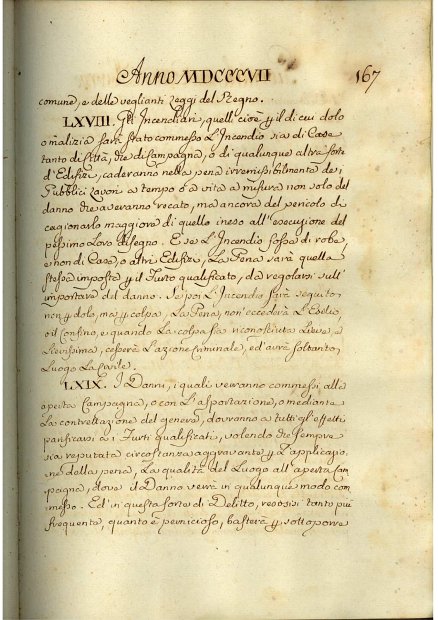 Anno MDCCCVII 167
comune, e delle veglianti Leggi del Regno.
LXVIII. Gli Incendiarj, quelli cioè p il di cui dolo
o malizia sarà stato commesso l'Incendio sia di Case
tanto di Città, che di Campagna, o di qualunque altra sorte
d'Edifizj, caderanno nella pena irremissibilmente de'
Pubblici Lavori a tempo o a vita a misura non solo del
danno che averanno recato, ma ancora del pericolo di
cagionarlo maggiore di quello ineso all'esecuzione del
pessimo Loro disegno. E se L'Incendio fosse di robe,
e non di Case, o altri Edifizj, La Pena sarà quella
stessa imposta p il Furto qualificato, da regolarsi sull'
importare del danno. Se poi L'Incendio sarà seguito
non p dolo, ma p colpa, La Pena non eccederà L'Esilio,
o il Confino, e quando La colpa sia riconosciuta Lieve, o
Lievissima, cesserà L'azione Criminale, ed avrà soltanto
Luogo La Civile.
LXIX. I Danni, i quali verranno commessi alla
aperta Campagna, o con L'asportazione, o mediante
La contrettazione del genere, dovranno a tutti gli effetti
parificarsi a i Furti qualificati, volendo che sempre
sia reputata circostanza aggravante p L'applicazio-
ne della pena, La qualità del Luogo all'aperta Cam-
pagna, dove il Danno verrà in qualunque modo com-
messo. Ed in questa sorte di Delitto, resosi tanto più
frequente, quanto è pernicioso, basterà p sottoporre